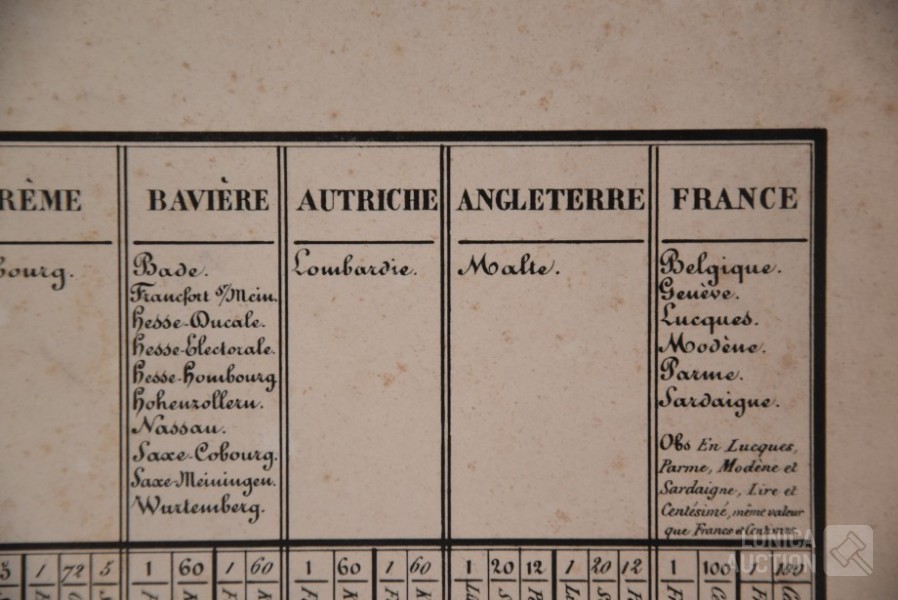 RÈME
BAVIÈRE
AUTRICHE
ANGLETERRE
FRANCE
bourg.
Bade.
Francfort s/Mein.
Hesse-Ducale.
Hesse-Électorale.
Hesse-Hombourg
Hohenzollern.
Nassau.
Saxe-Cobourg.
Saxe-Meiningen.
Wurtemberg.
Lombardie.
Malte.
Belgique.
Genève.
Lucques.
Modène.
Parme.
Sardaigne.
Obs En Lucques,
Parme, Modène et
Sardaigne, Lire et
Centésimé, même valeur
que Francs et Centimes.
1 72 5 1 60 1 60 1 60 1 60 1 20 12 1 20 12 1 100 1 100
LUNICA
AUCTION